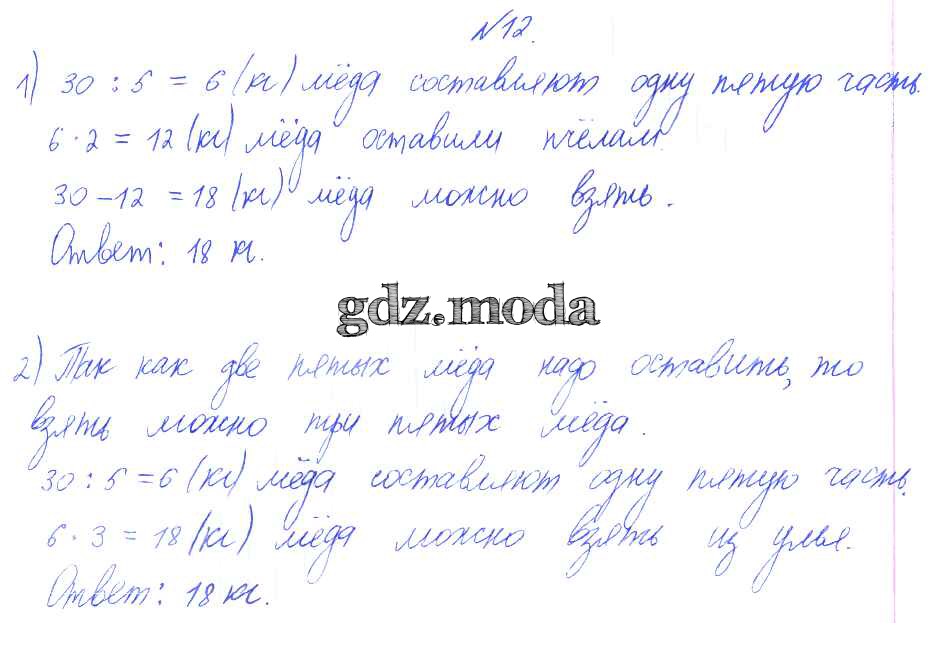 №12.
1) 30 : 5 = 6 (кг) мёда составляют одну пятую часть.
6 · 2 = 12 (кг) мёда оставили пчёлам.
30 – 12 = 18 (кг) мёда можно взять.
Ответ: 18 кг.
gdz.moda
2) Так как две пятых мёда надо оставить, то
взять можно три пятых мёда.
30 : 5 = 6 (кг) мёда составляют одну пятую часть.
6 · 3 = 18 (кг) мёда можно взять из улья.
Ответ: 18 кг.